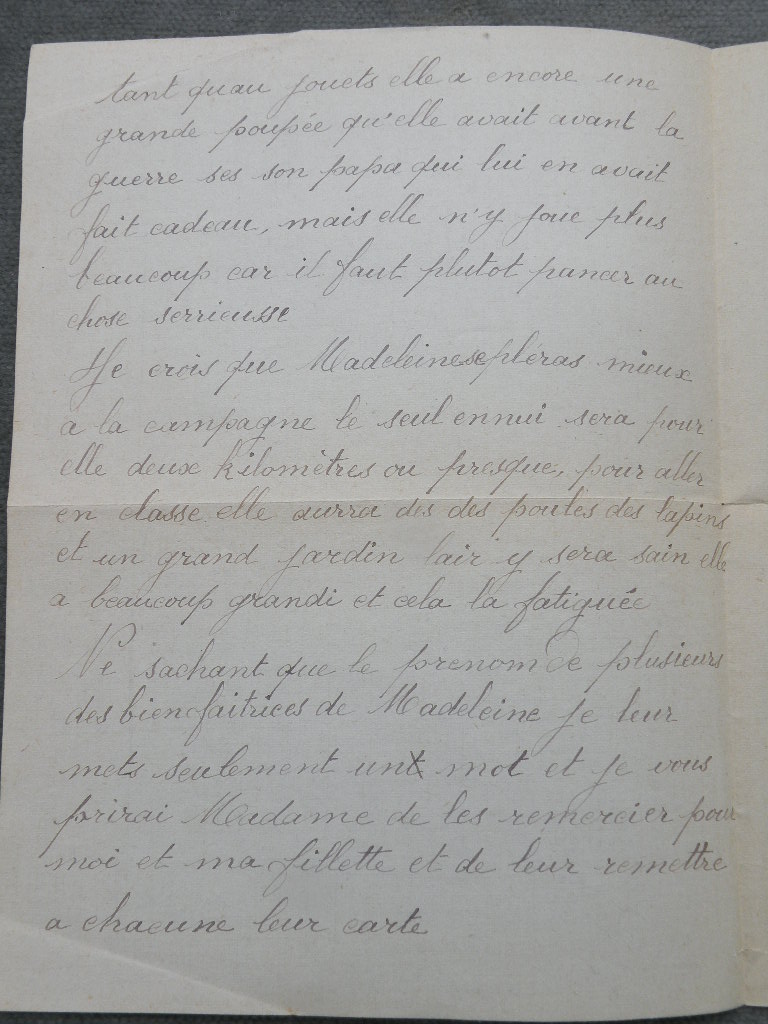 tant quau jouets elle a encore une
grande poupée qu'elle avait avant la
guerre ses son papa qui lui en avait
fait cadeau, mais elle n'y joue plus
beaucoup car il faut plutot pancer au
chose serrieusse
Je crois que Madeleine se pleras mieux
a la campagne le seul ennui sera pour
elle deux kilomètres ou presque, pour aller
en classe elle aurra des des poules des lapins
et un grand jardin lair y sera sain elle
a beaucoup grandi et cela la fatiguée
Ne sachant que le prenom de plusieurs
des bienfaitrices de Madeleine je leur
mets seulement un mot et je vous
prirai Madame de les remercier pour
moi et ma fillette et de leur remettre
a chacune leur carte